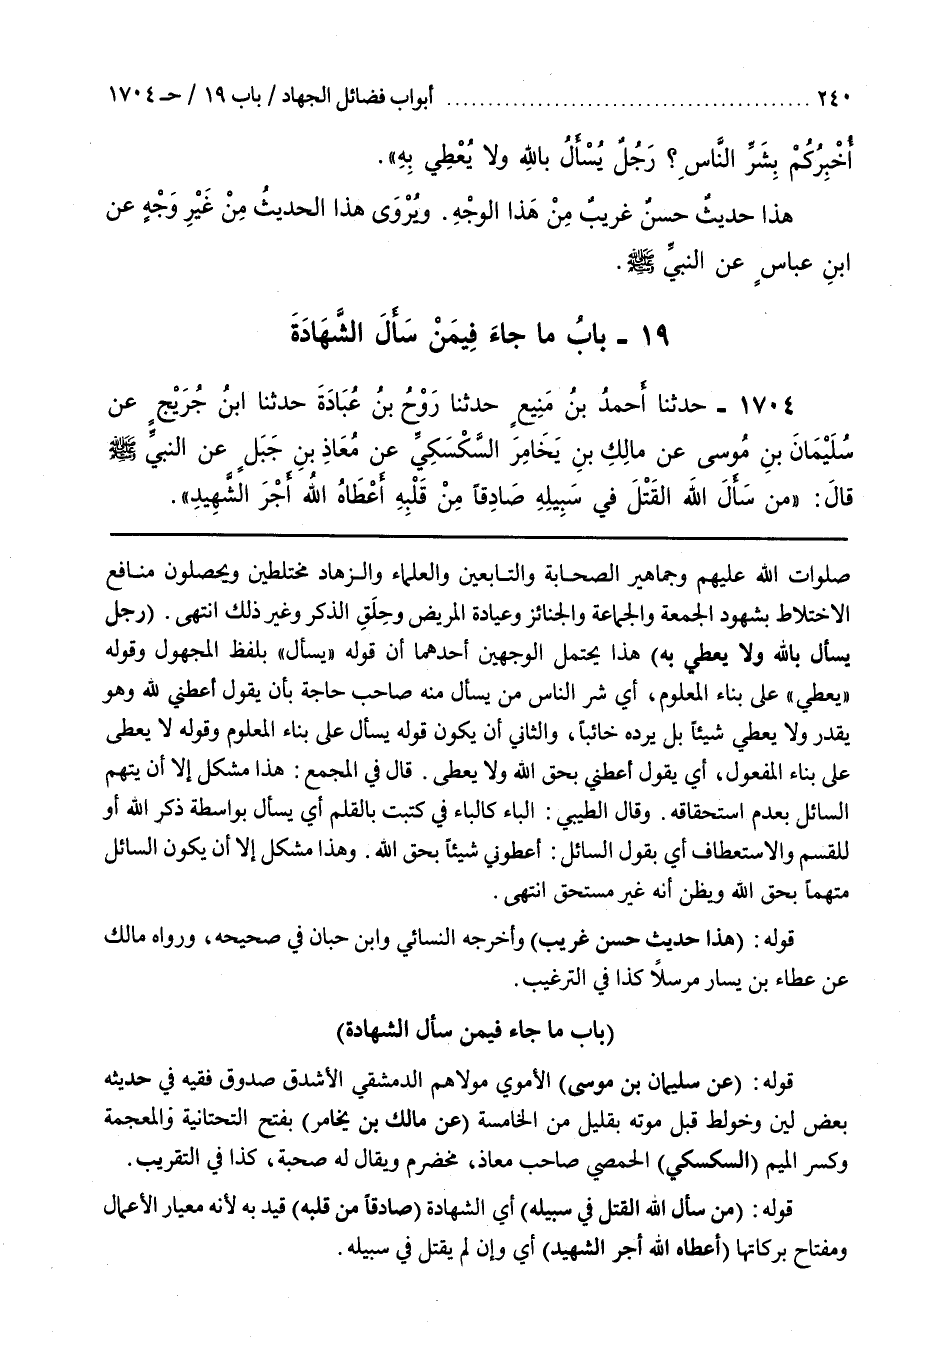 ٢٤٠ ............................................. أبواب فضائل الجهاد / باب ١٩ / حـ ١٧٠٤
أُخْبِرُكُمْ بِشَرِّ النَّاسِ؟ رَجُلٌ يُسْأَلُ باللهِ ولا يُعْطِي بِهِ».
هذا حديثٌ حسنٌ غريبٌ مِنْ هَذا الوجْهِ. ويُرْوَى هذا الحديثُ مِنْ غَيْرِ وَجْهٍ عن
ابنِ عباسٍ عن النبيِّ ﷺ.
١٩ - بابُ ما جاءَ فِيمَنْ سَأَلَ الشَّهَادَةَ
١٧٠٤ - حدثنا أَحمدُ بنُ مَنِيعٍ حدثنا رَوْحُ بنُ عُبَادَةَ حدثنا ابنُ جُرَيْجٍ عن
سُلَيْمَانَ بنِ مُوسى عن مالِكِ بنِ يَخَامِرَ السَّكْسَكِيِّ عن مُعَاذِ بنِ جَبَلٍ عن النبيِّ ﷺ
قالَ: «من سَأَلَ اللهَ القَتْلَ في سَبِيلِهِ صَادِقاً مِنْ قَلْبِهِ أَعْطَاهُ اللهُ أَجْرَ الشَّهِيدِ».
صلوات الله عليهم وجماهير الصحابة والتابعين والعلماء والزهاد مختلطين ويحصلون منافع
الاختلاط بشهود الجمعة والجماعة والجنائز وعيادة المريض وحِلَقِ الذكر وغير ذلك انتهى. (رجل
يسأل بالله ولا يعطي به) هذا يحتمل الوجهين أحدهما أن قوله «يسأل» بلفظ المجهول وقوله
«يعطي» على بناء المعلوم، أي شر الناس من يسأل منه صاحب حاجة بأن يقول أعطني لله وهو
يقدر ولا يعطي شيئاً بل يرده خائباً، والثاني أن يكون قوله يسأل على بناء المعلوم وقوله لا يعطى
على بناء المفعول، أي يقول أعطني بحق الله ولا يعطى. قال في المجمع: هذا مشكل إلا أن يتهم
السائل بعدم استحقاقه. وقال الطيبي: الباء كالباء في كتبت بالقلم أي يسأل بواسطة ذكر الله أو
للقسم والاستعطاف أي بقول السائل: أعطوني شيئاً بحق الله. وهذا مشكل إلا أن يكون السائل
متهماً بحق الله ويظن أنه غير مستحق انتهى.
قوله: (هذا حديث حسن غريب) وأخرجه النسائي وابن حبان في صحيحه، ورواه مالك
عن عطاء بن يسار مرسلًا كذا في الترغيب.
(باب ما جاء فيمن سأل الشهادة)
قوله: (عن سليمان بن موسى) الأموي مولاهم الدمشقي الأشدق صدوق فقيه في حديثه
بعض لين وخولط قبل موته بقليل من الخامسة (عن مالك بن يخامر) بفتح التحتانية والمعجمة
وكسر الميم (السكسكي) الحمصي صاحب معاذ، مخضرم ويقال له صحبة، كذا في التقريب.
قوله: (من سأل الله القتل في سبيله) أي الشهادة (صادقاً من قلبه) قيد به لأنه معيار الأعمال
ومفتاح بركاتها (أعطاه الله أجر الشهيد) أي وإن لم يقتل في سبيله.